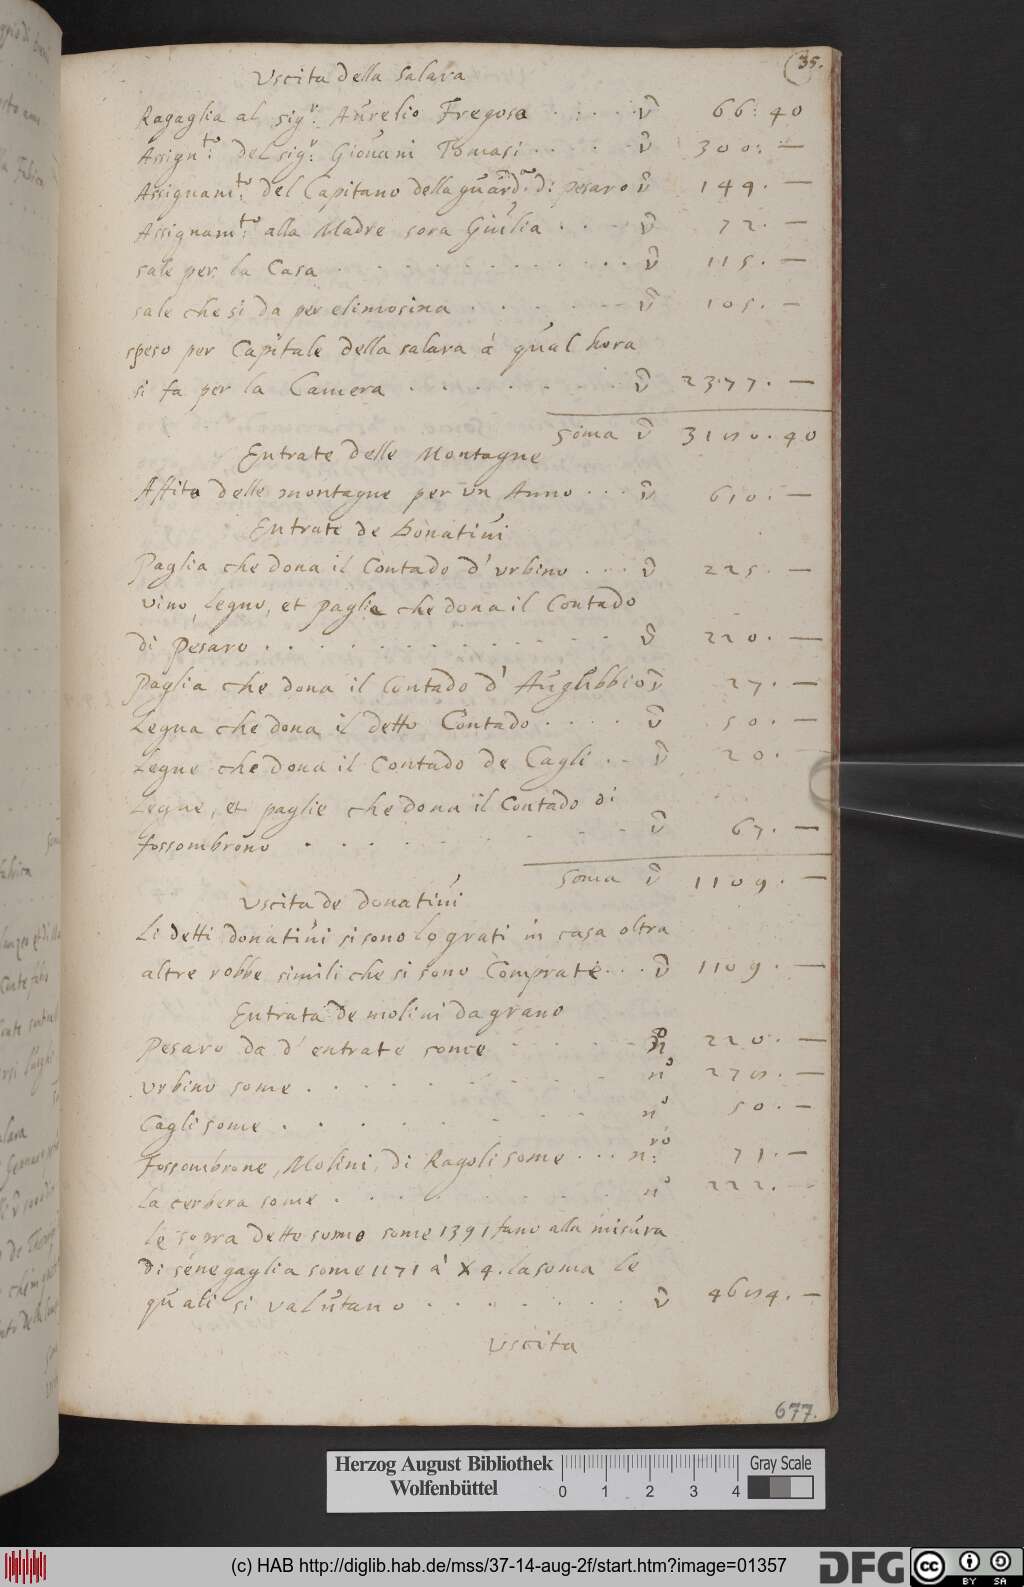 35.
Uscita della salara
Ragaglia al sig.r Aurelio Fregoso . . . . . v 66: 40
Assign.to del sig.r Giovani Tomasi . . . . . v 300: —
Assignam.to del Capitano della guard.a di pesaro v 149. —
Assignam.to alla Madre sora Giulia . . . . v 72. —
sale per la Casa . . . . . . . . . . v 115. —
sale che si da per elimosina . . . . . . v 105. —
speso per Capitale della salara à qual hora
si fa per la Camera . . . . . . . . v 2377. —
Soma v 40
Entrate delle Montagne
Affito delle montagne per un Anno . . . v 610. —
Entrate de Donativi
Paglia che dona il Contado d' urbino . . . v 225. —
vino, legno, et paglie che dona il Contado
di Pesaro . . . . . . . . . . . . v 220. —
Paglia che dona il Contado d' Augubbio v 27. —
Legna che dona il detto Contado . . . . v 50. —
Legne che dona il Contado de Cagli . . v 20.
Legne, et paglie che dona il Contado di
fossombrono . . . . . . . . v 67. —
Soma v 1109. —
Uscita de donativi
Li detti donativi si sono lograti in casa oltra
altre robbe simili che si sono Comprate . . . v 1109. —
Entrata de molini da grano
Pesaro da d' entrate some . . . . . n 220. —
urbino some . . . . . . . . . n.o —
Cagli some . . . . . . . . . n.o 50. —
fossombrone, Molini, di Ragoli some . . . n.ro 71. —
la cerbera some . . . . . . . . . n.o 222. —
le sopra dette some some 1391 fano alla misura
di senegaglia some 1171 à X 4. la soma le
quali si valutano . . . . . . . v —
Uscita
677.
Herzog August Bibliothek
Wolfenbüttel
0 1 2 3 4
Gray Scale
(c) HAB http://diglib.hab.de/mss/37-14-aug-2f/start.htm?image=01357
DFG
cc BY SA